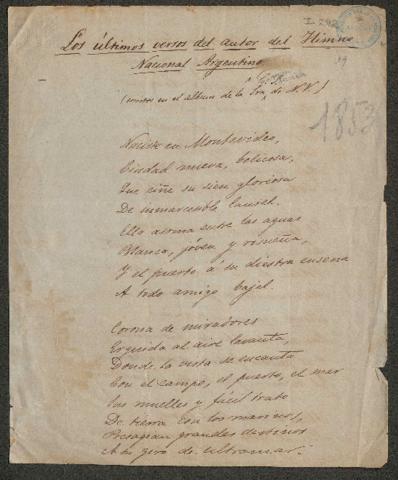 I-292
Los últimos versos del autor del Himno
Nacional Argentino
19
(escritos en el album de la Sra. de N.N.)
1853
Naciste en Montevideo,
Ciudad nueva, belicosa,
Que ciñe su sien gloriosa
De inmarcesible laurel.
Ella asoma entre las aguas
Blanca, jóven y risueña,
Y el puerto á su diestra enseña
A todo amigo bajel.
Corona de miradores
Erguida al aire levanta,
Donde la vista se encanta
Con el campo, el puerto, el mar
Sus muelles y fácil trato
De tierra con los marinos,
Presagian grandes destinos
A su giro de ultramar.